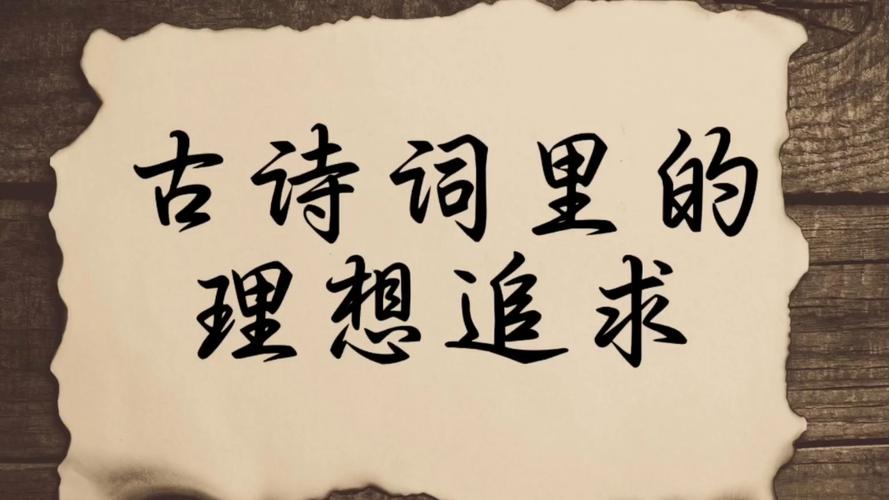 古诗词里的
理想追求